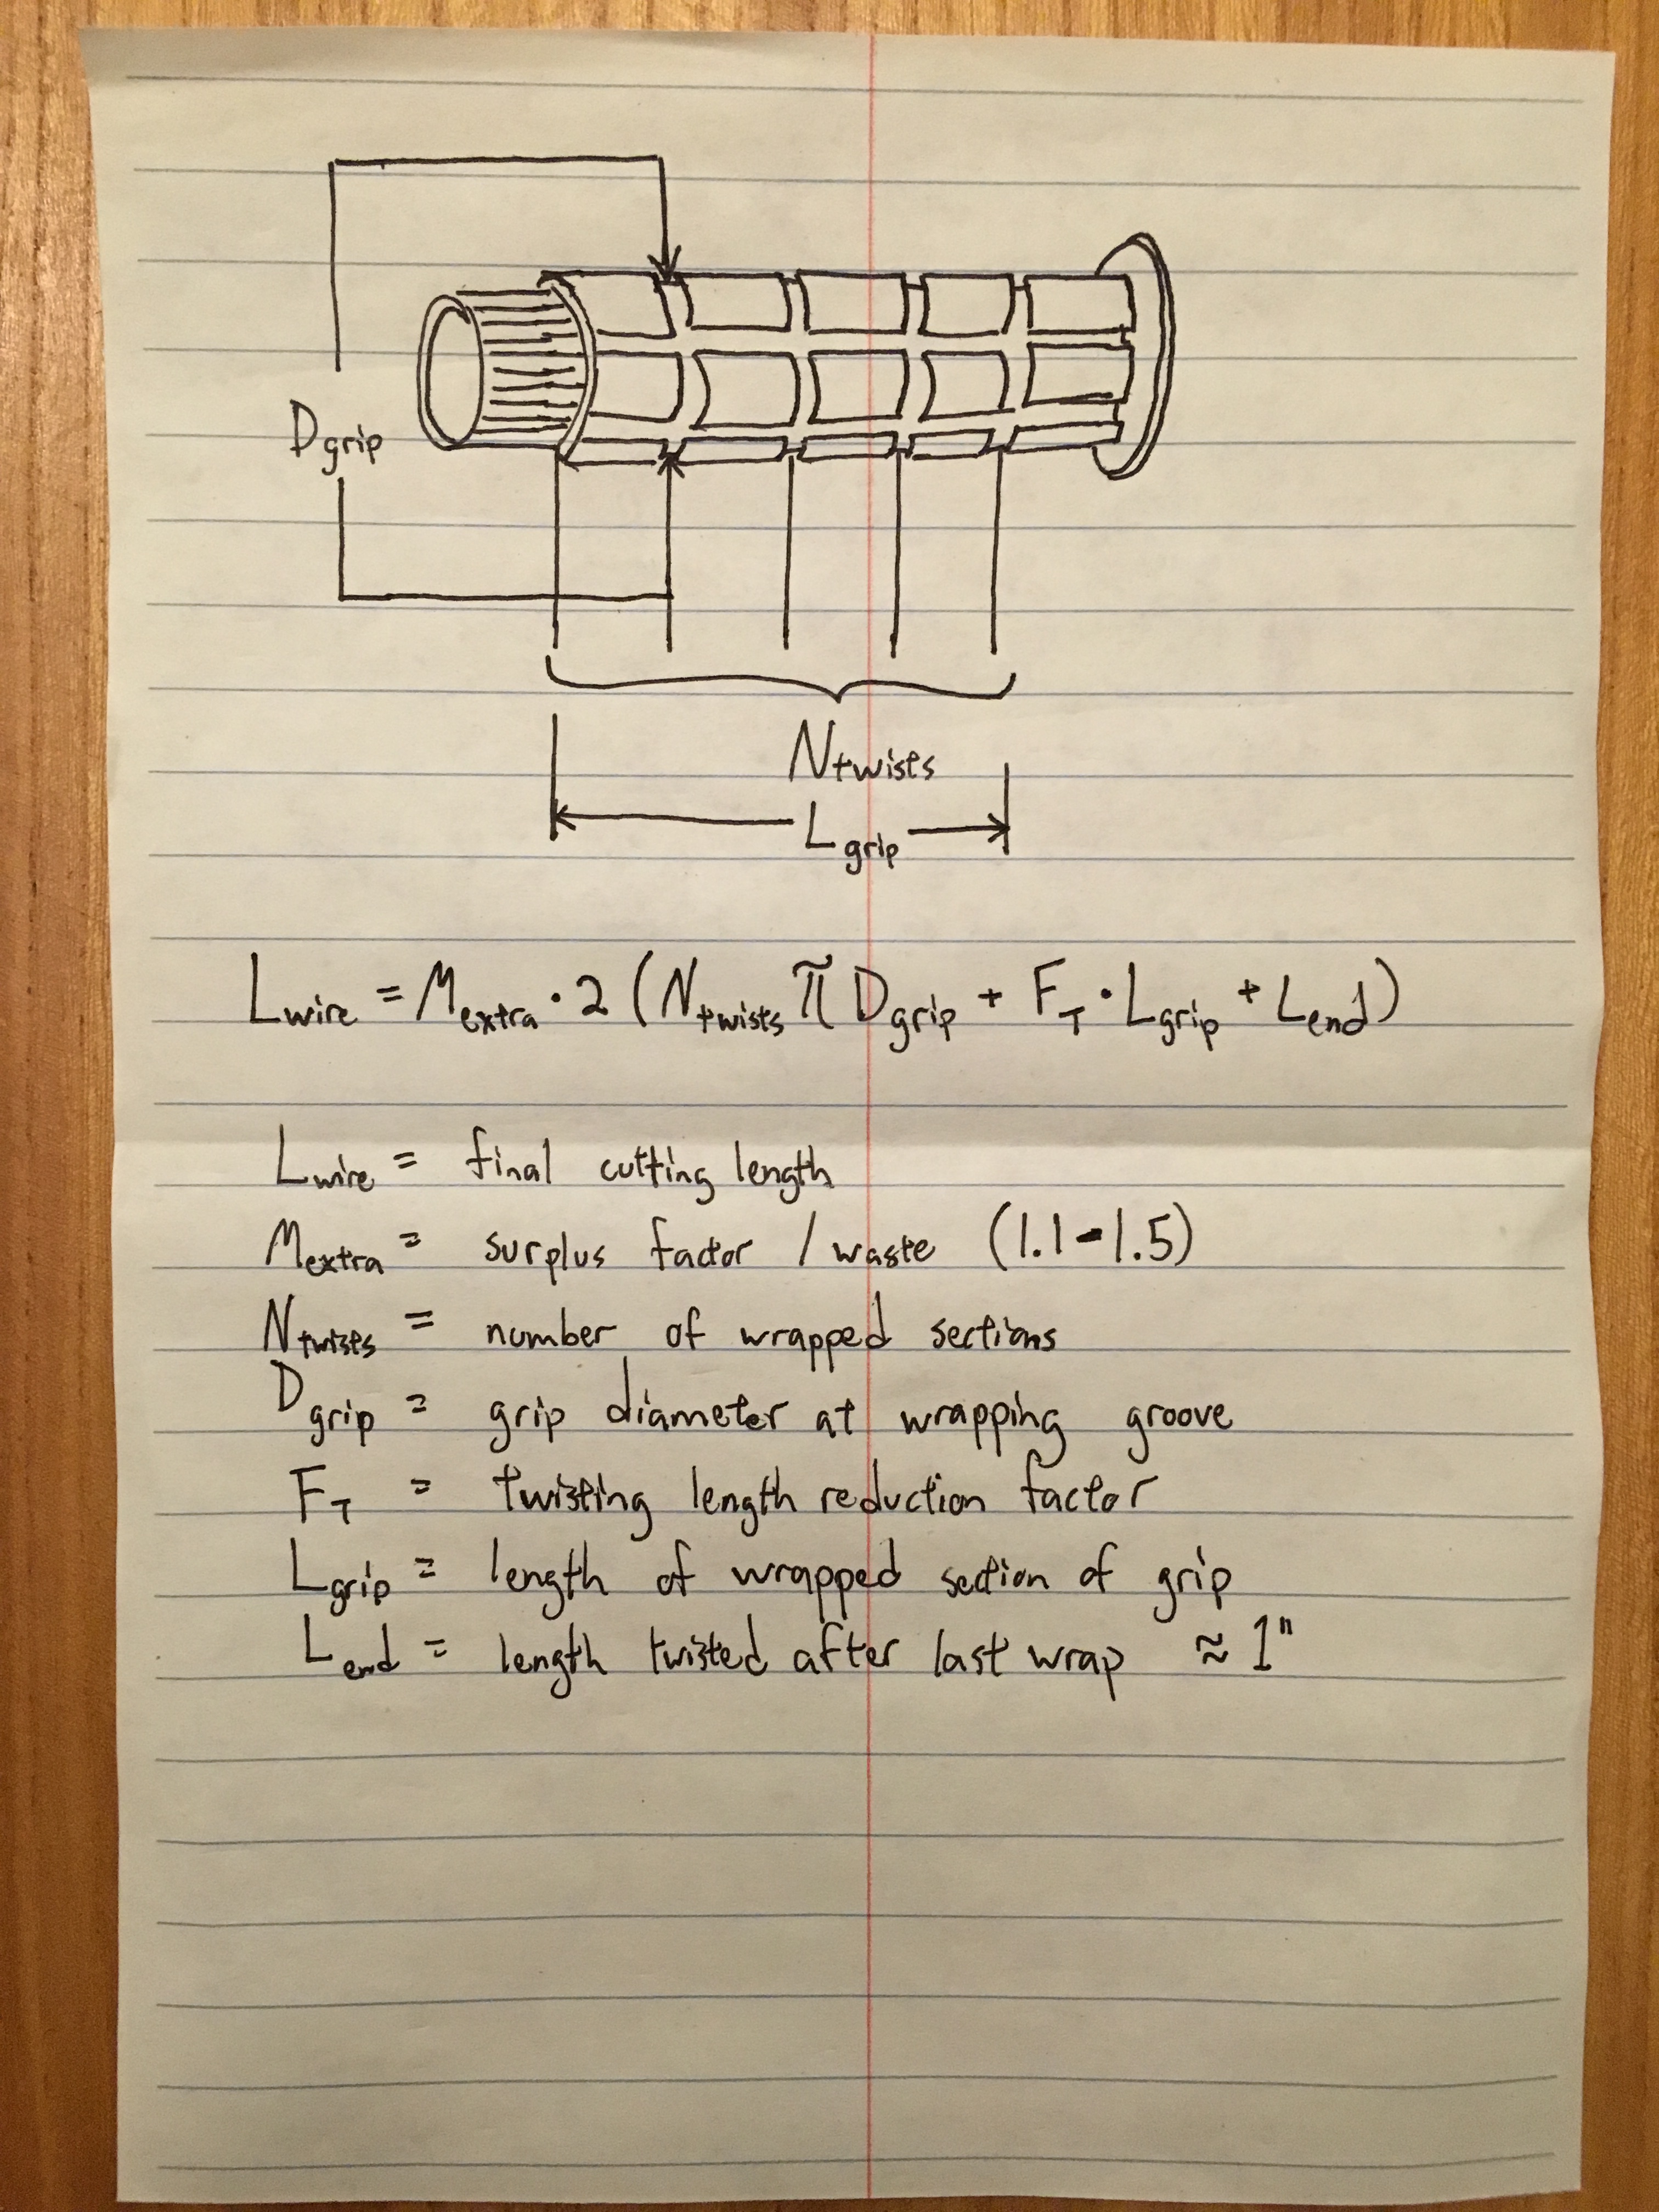 D grip
N twists
L grip
L wire = M extra · 2 (N twists π D grip + F T · L grip + L end)
L wire = final cutting length
M extra = surplus factor / waste (1.1-1.5)
N twists = number of wrapped sections
D grip = grip diameter at wrapping groove
F T = twisting length reduction factor
L grip = length of wrapped section of grip
L end = length twisted after last wrap ≈ 1"